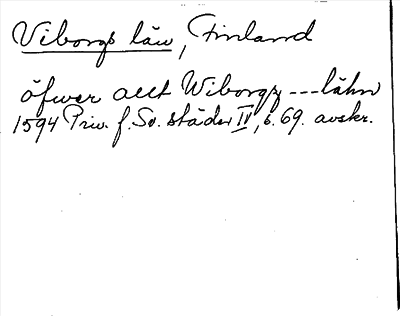 Viborgs län, Finland
öfwer allt Wiborgz --- lähn
1594 Priv. f. Sv. städer IV, s. 69. avskr.